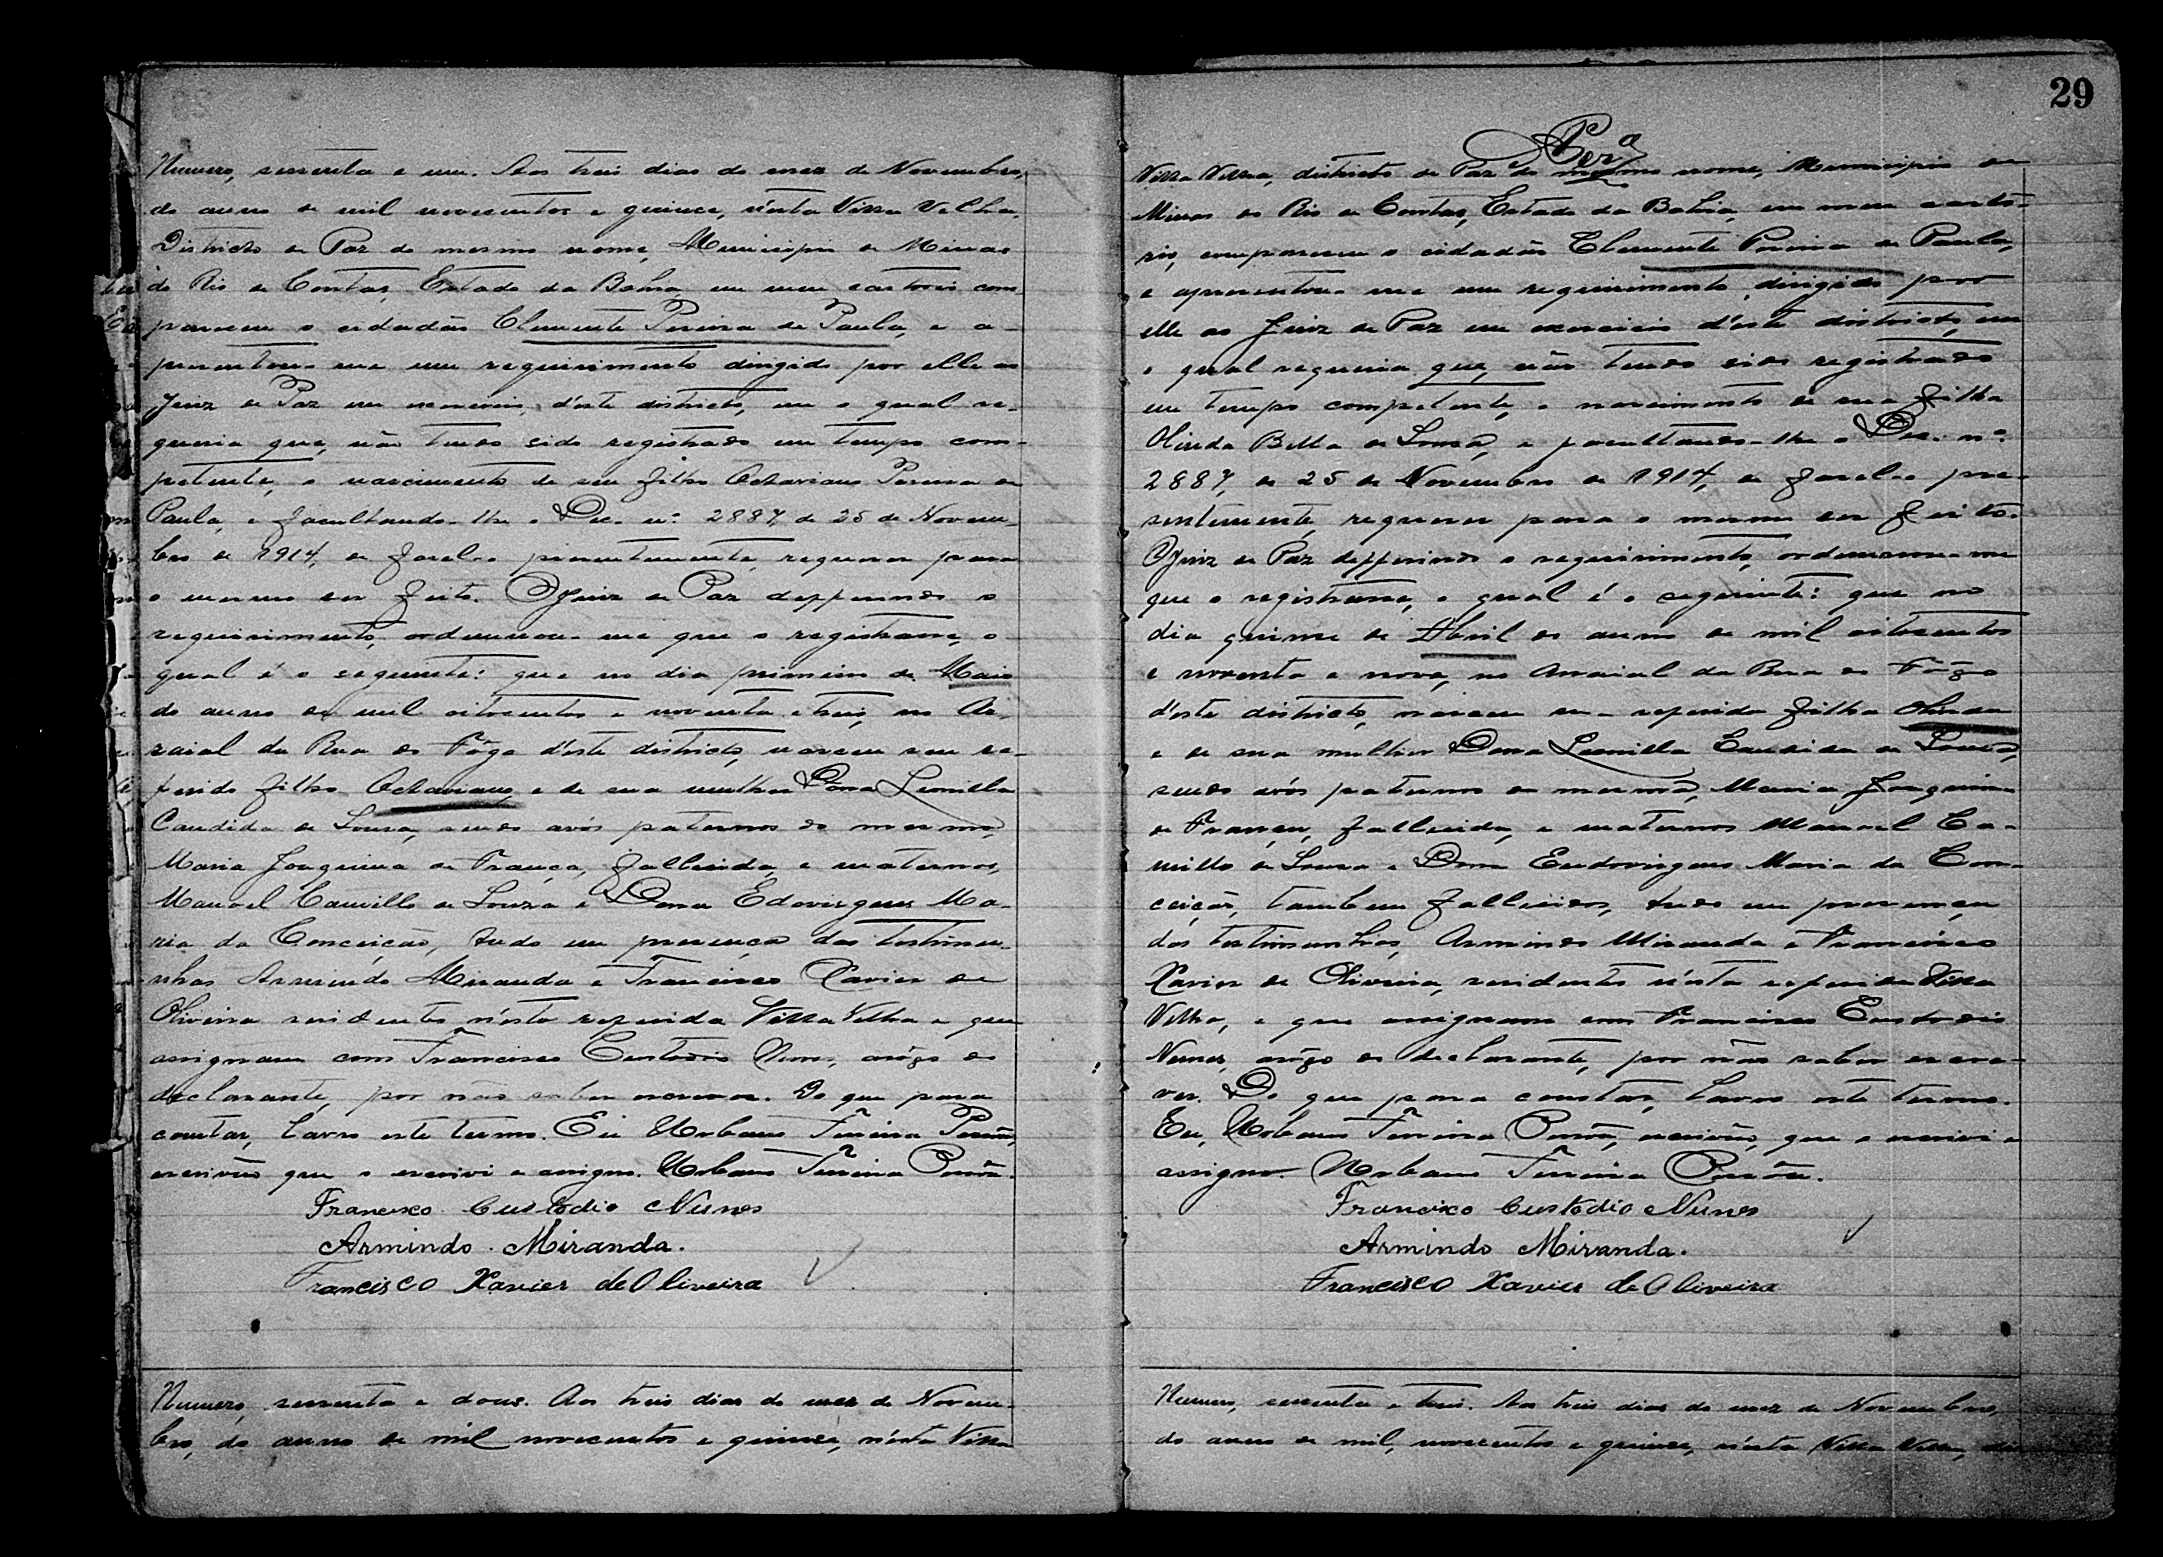 Numero, sessenta e um. Aos treis dias do mez de Novembro,
do anno de mil novecentos e quinze, n'esta Villa Velha,
Districto de Paz do mesmo nome, Municipio de Minas
do Rio de Contas, Estado da Bahia, em meu cartorio com-
pareceu o cidadão Clemente Pereira de Paula, e a-
presentou-me um requirimento dirigido por elle ao
Juiz de Paz em exercicio, d'este districto, em o qual re-
queria que, não tendo sido registrado em tempo com-
petente, o nascimento de seu filho Octaviano Pereira de
Paula, e facultando-lhe o Dec. nº 2887, de 25 de Novem-
bro de 1914, de fazel-o presentemente, requerer para
o mesmo ser feito. O Juiz de Paz defferindo o
requirimento, ordennou-me que o registrasse, o
qual é o seguinte: que no dia primeiro de Maio
do anno de mil oitocentos e noventa e treis, no Ar-
raial da Rua do Fôgo d'este districto, nasceu seu re-
ferido filho Octaviano, e de sua mulher Dona Leonilla
Candida de Souza, sendo avós paternos do mesmo,
Maria Joaquina de França, fallecida, e maternos,
Manoel Camillo de Souza e Dona Edovirgens Ma-
ria da Conceição, tudo em presença das testemu-
nhas Armindo Miranda e Francisco Xavier de
Oliveira residentes n'esta referida Villa Velha e que
assignam com Francisco Custodio Nunes, arôgo do
declarante, por não saber escrever. Do que para
constar, lavro este termo. Eu Urbano Ferreira
escrivão que o escrevi e assigno. Urbano Ferreira
Francisco Custodio Nunes
Armindo Miranda.
Francisco Xavier de Oliveira
Numero, sessenta e dous. Aos treis dias do mez de Novem-
bro, do anno de mil novecentos e quinze, n'esta Villa
29
Villa Velha, districto de Paz do mesmo nome, Municipio de
Minas do Rio de Contas, Estado da Bahia, em meu carto-
rio, compareceu o cidadão Clemente Pereira de Paula,
e apresentou-me um requirimento, dirigido por
elle ao Juiz de Paz em exercicio d'este districto, em
o qual requeria que, não tendo sido registrado
em tempo competente, o nascimento de sua filha
Olinda Bella de Souza, e facultando-lhe o Dec. nº
2887, de 25 de Novembro de 1914, de fazel-o pre-
sentemente, requerer para o mesmo ser feito.
O Juiz de Paz defferindo o requirimento, ordennou-me
que o registrasse, o qual é o seguinte: que no
dia quinze de Abril do anno de mil oitocentos
e noventa e nove, no Arraial da Rua do Fôgo
d'este districto, nasceu sua referida filha Olinda
e de sua mulher Dona Leonilla Candida de Souza,
sendo avós paternos da mesma, Maria Joaquina
de França, fallecida, e maternos Manoel Ca-
millo de Souza e Dona Eudovirgens Maria da Con-
ceição, tambem fallecidos, tudo em presença
das testemunhas, Armindo Miranda e Francisco
Xavier de Oliveira, residentes n'esta referida Villa
Velha, e que assignam com Francisco Custodio
Nunes, arôgo do declarante, por não saber escre-
ver. Do que para constar, lavro este termo.
Eu, Urbano Ferreira escrivão, que o escrevi e
assigno. Urbano Ferreira
Francisco Custodio Nunes
Armindo Miranda.
Francisco Xavier de Oliveira
Numero, sessenta e treis. Aos treis dias do mez de Novembro,
do anno de mil, novecentos e quinze, n'esta Villa Velha, dis